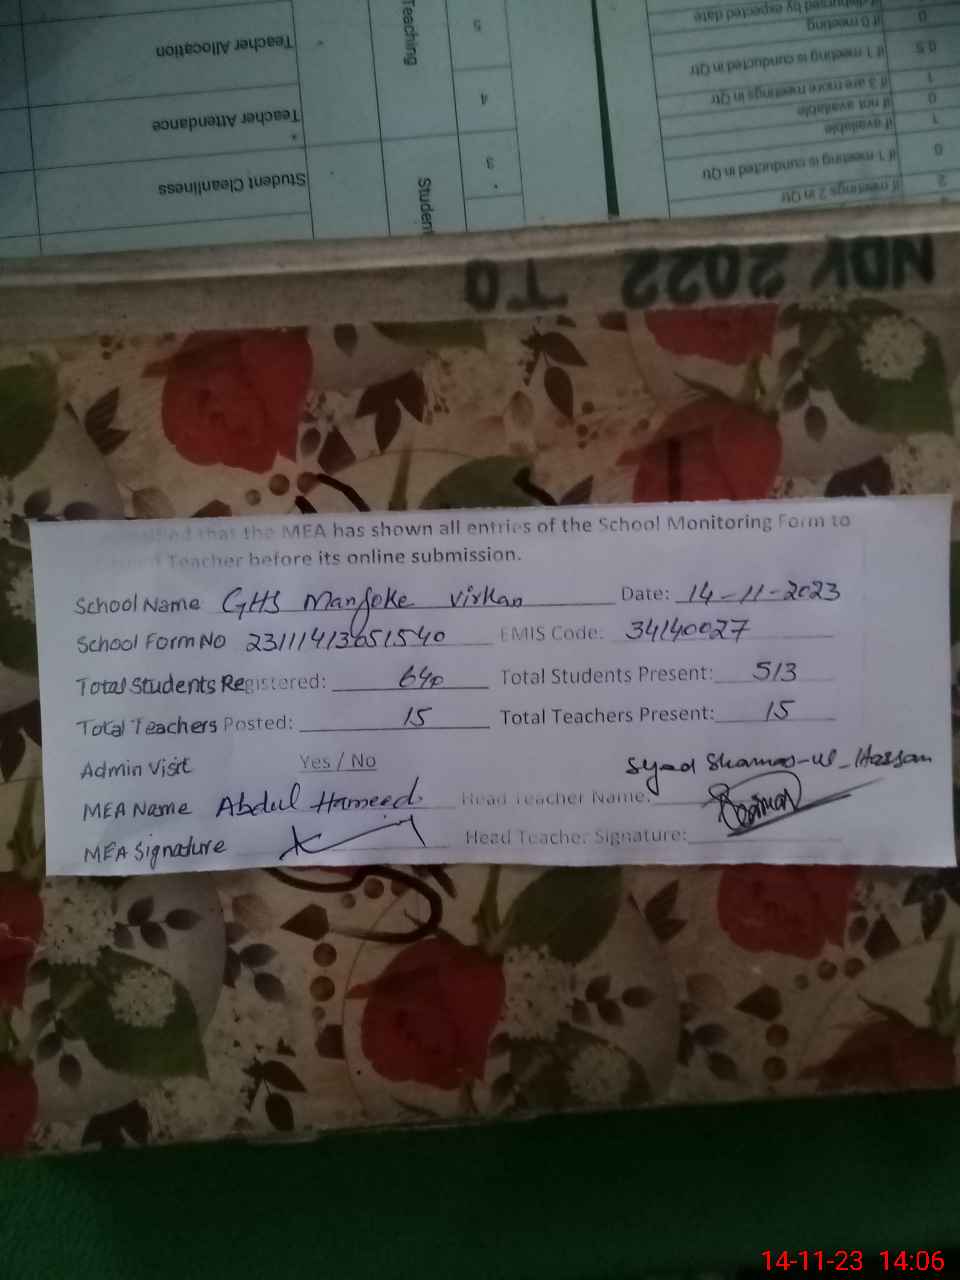 Teaching
5
Teacher Allocation
4
Teacher Attendance
3
Student Cleanliness
Student
if disbursed by expected date
0 if 0 meeting
0.5 if 1 meeting is conducted in Qtr
1 if 3 are more meetings in Qtr
0 if not available
1 if available
if 1 meeting is conducted in Qtr
2 if meetings 2 in Qtr
NOV 2022 TO
that the MEA has shown all entries of the School Monitoring Form to
Teacher before its online submission.
School Name GHS Manjoke Virkan Date: 14-11-2023
School Form No 23111413651540 EMIS Code: 34140027
Total Students Registered: 640 Total Students Present: 513
Total Teachers Posted: 15 Total Teachers Present: 15
Admin Visit Yes / No
Syed Shamas-ul-Hassan
MEA Name Abdul Hameed Head Teacher Name:
MEA Signature Head Teacher Signature:
14-11-23 14:06